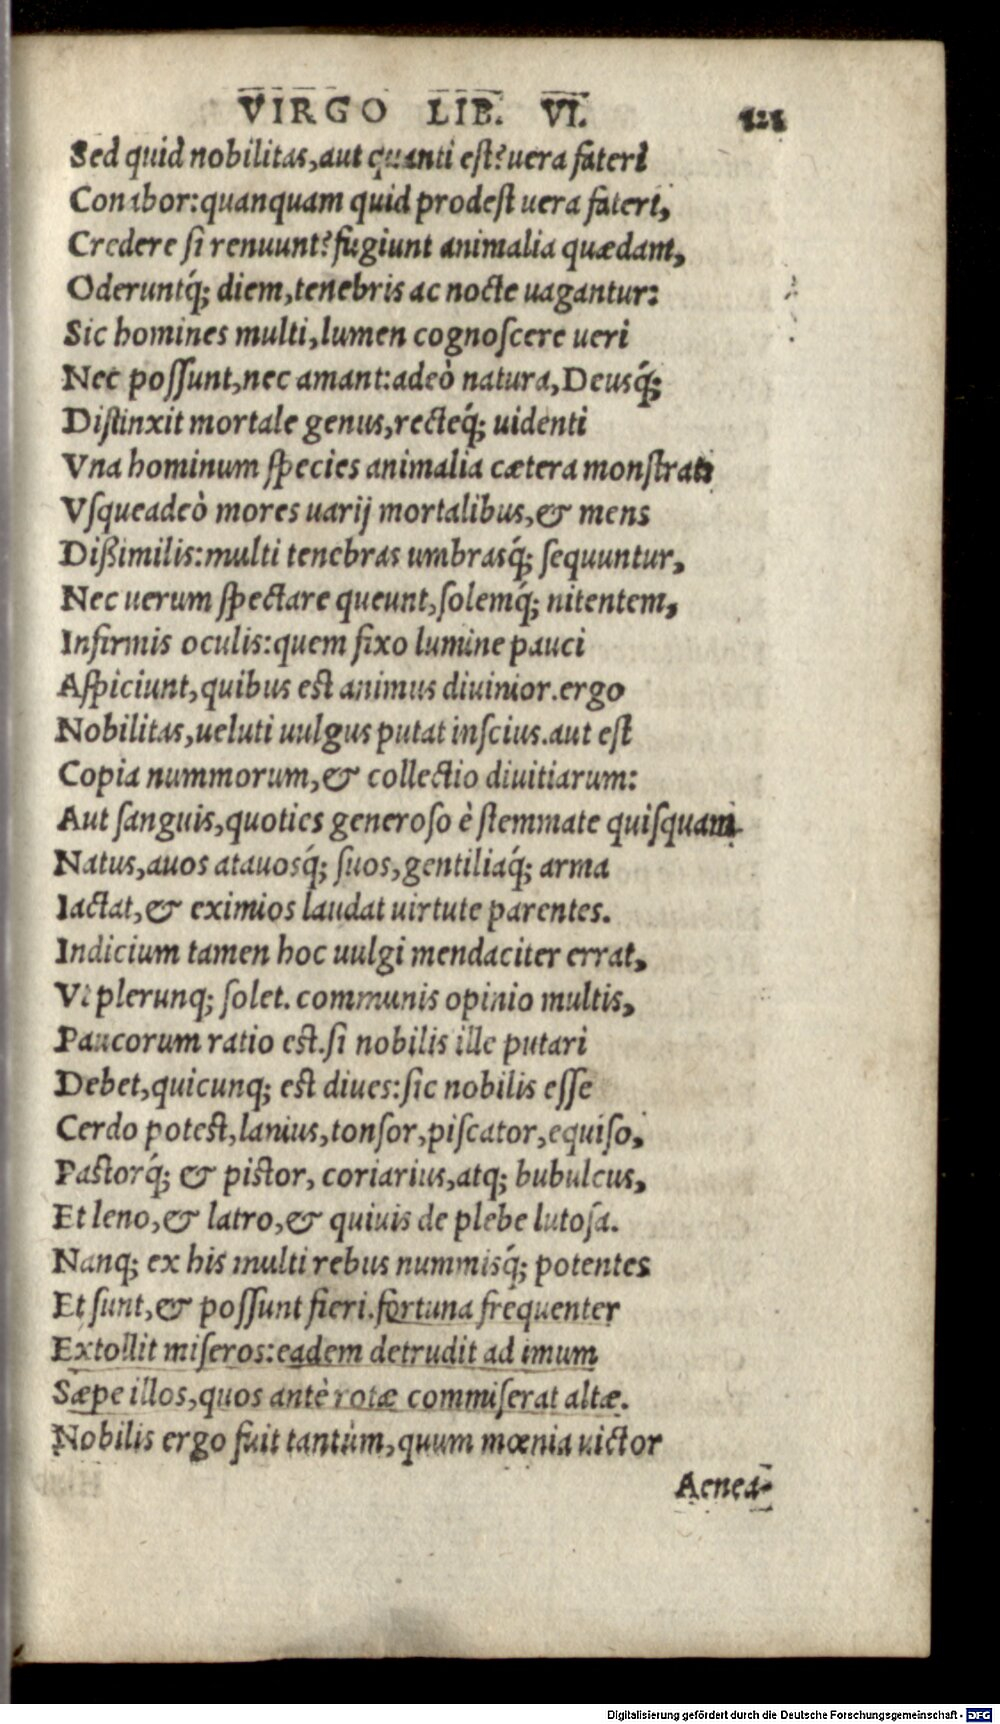 VIRGO LIB. VI. 121
Sed quid nobilitas,aut quanti est?uera fateri
Conabor:quanquam quid prodest uera fateri,
Credere si renuunt?fugiunt animalia quædam,
Oderuntq́; diem,tenebris ac nocte uagantur:
Sic homines multi,lumen cognoscere ueri
Nec possunt,nec amant:adeò natura,Deusq́;
Distinxit mortale genus,recteq́; uidenti
Vna hominum species animalia cætera monstrat:
Vsqueadeò mores uarij mortalibus,& mens
Dißimilis:multi tenebras umbrasq́; sequuntur,
Nec uerum spectare queunt,solemq́; nitentem,
Infirmis oculis:quem fixo lumine pauci
Aspiciunt,quibus est animus diuinior.ergo
Nobilitas,ueluti uulgus putat inscius.aut est
Copia nummorum,& collectio diuitiarum:
Aut sanguis,quoties generoso è stemmate quisquam
Natus,auos atauosq́; suos,gentiliaq́; arma
Iactat,& eximios laudat uirtute parentes.
Indicium tamen hoc uulgi mendaciter errat,
Vt plerunq; solet. communis opinio multis,
Paucorum ratio est.si nobilis ille putari
Debet,quicunq; est diues:sic nobilis esse
Cerdo potest,lanius,tonsor,piscator,equiso,
Pastorq́; & pistor, coriarius,atq; bubulcus,
Et leno,& latro,& quiuis de plebe lutosa.
Nanq; ex his multi rebus nummisq́; potentes
Et sunt,& possunt fieri.fortuna frequenter
Extollit miseros:eadem detrudit ad imum
Sæpe illos,quos antè rotæ commiserat altæ.
Nobilis ergo fuit tantùm,quum mœnia uictor
Aenea-
Digitalisierung gefördert durch die Deutsche Forschungsgemeinschaft - DFG